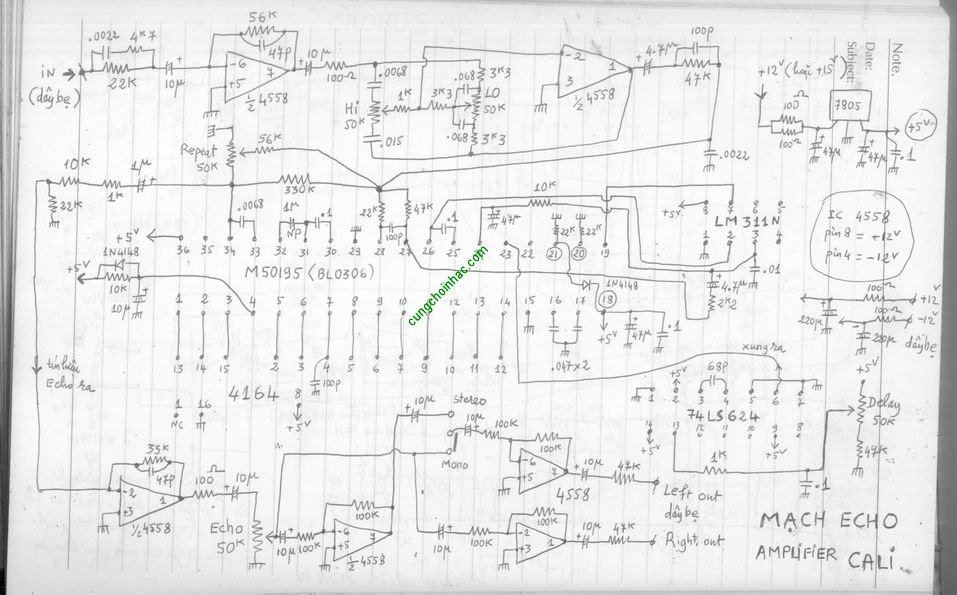 56K
.0022 4K7
47P
10µ
100Ω
.0068
.068
3K3
4.7µ
100P
47K
Note.
Date:
Subject:
iN
(dây bẹ)
22K
10µ
-6
+5
7
½ 4558
Hi
50K
1K
3K3
LO
50K
.068
3K3
.015
-2
3
1
½ 4558
+12V (hoặc +15V)
100Ω
100Ω
7805
+5V
47µ
47µ
.1
Repeat
50K
56K
.0022
10K
22K
1K
1µ
330K
.0068
1µ
NP
.1
22K
100P
47K
.1
47µ
10K
22K
22K
+5V
8 7 6 5
LM 311N
1 2 3 4
.01
IC 4558
pin 8 = +12V
pin 4 = -12V
+5V
36 35 34 33 32 31 30 29 28 27 26 25 23 22 21 20 19
M50195 (BL0306)
1N4148
+5V
10K
10µ
1N4148
18
4.7µ
2K2
+5V
47µ
.1
1 2 3 4 5 6 7 8 9 10 11 12 13 14 15 16 17
.047x2
cungchoinhac.com
100Ω
+12V
100Ω
-12V
220µ
220µ
dây bẹ
13 14 15 4 2 3 4 5 6 7 9 10 11 12
100P
4164
1
NC
16
8
+5V
tín hiệu
Echo ra
xung ra
+5V
68P
1 2 3 4 5 6 7
74LS624
14 13 12 11 10 9 8
+5V
+5V
1K
.1
+5V
Delay
50K
47K
33K
47P
-2
+3
1
½ 4558
100Ω
10µ
Echo
50K
10µ
100K
100K
-6
+5
7
½ 4558
10µ
stereo
Mono
10µ
100K
100K
-6
+5
7
4558
10µ
47K
Left out
dây bẹ
10µ
100K
100K
-2
+3
1
10µ
47K
Right out
MẠCH ECHO
AMPLIFIER CALI